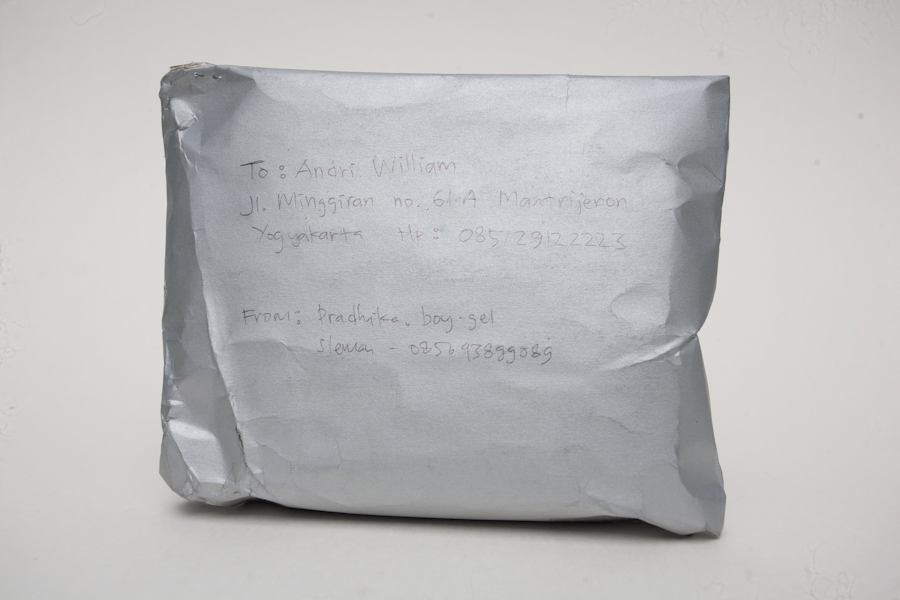 To: Andri William
Jl. Minggiran no. 61 A Mantrijeron
Yogyakarta Hp: 085729122223
From: Pradhika. boy-gel
Sleman - 085693899089